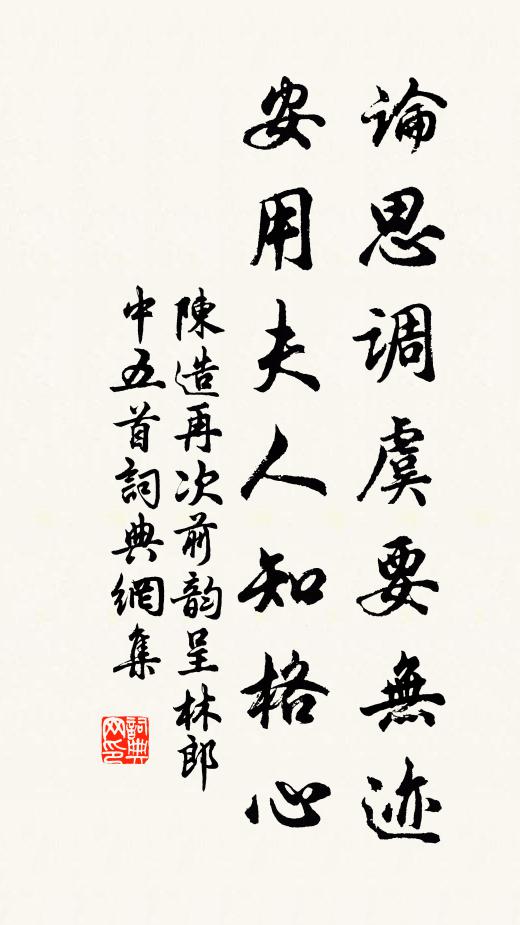 論思調虞要無迹
安用夫人知格心
陳造再次前韵呈林郎
中五首詞典網集
詞典
网印